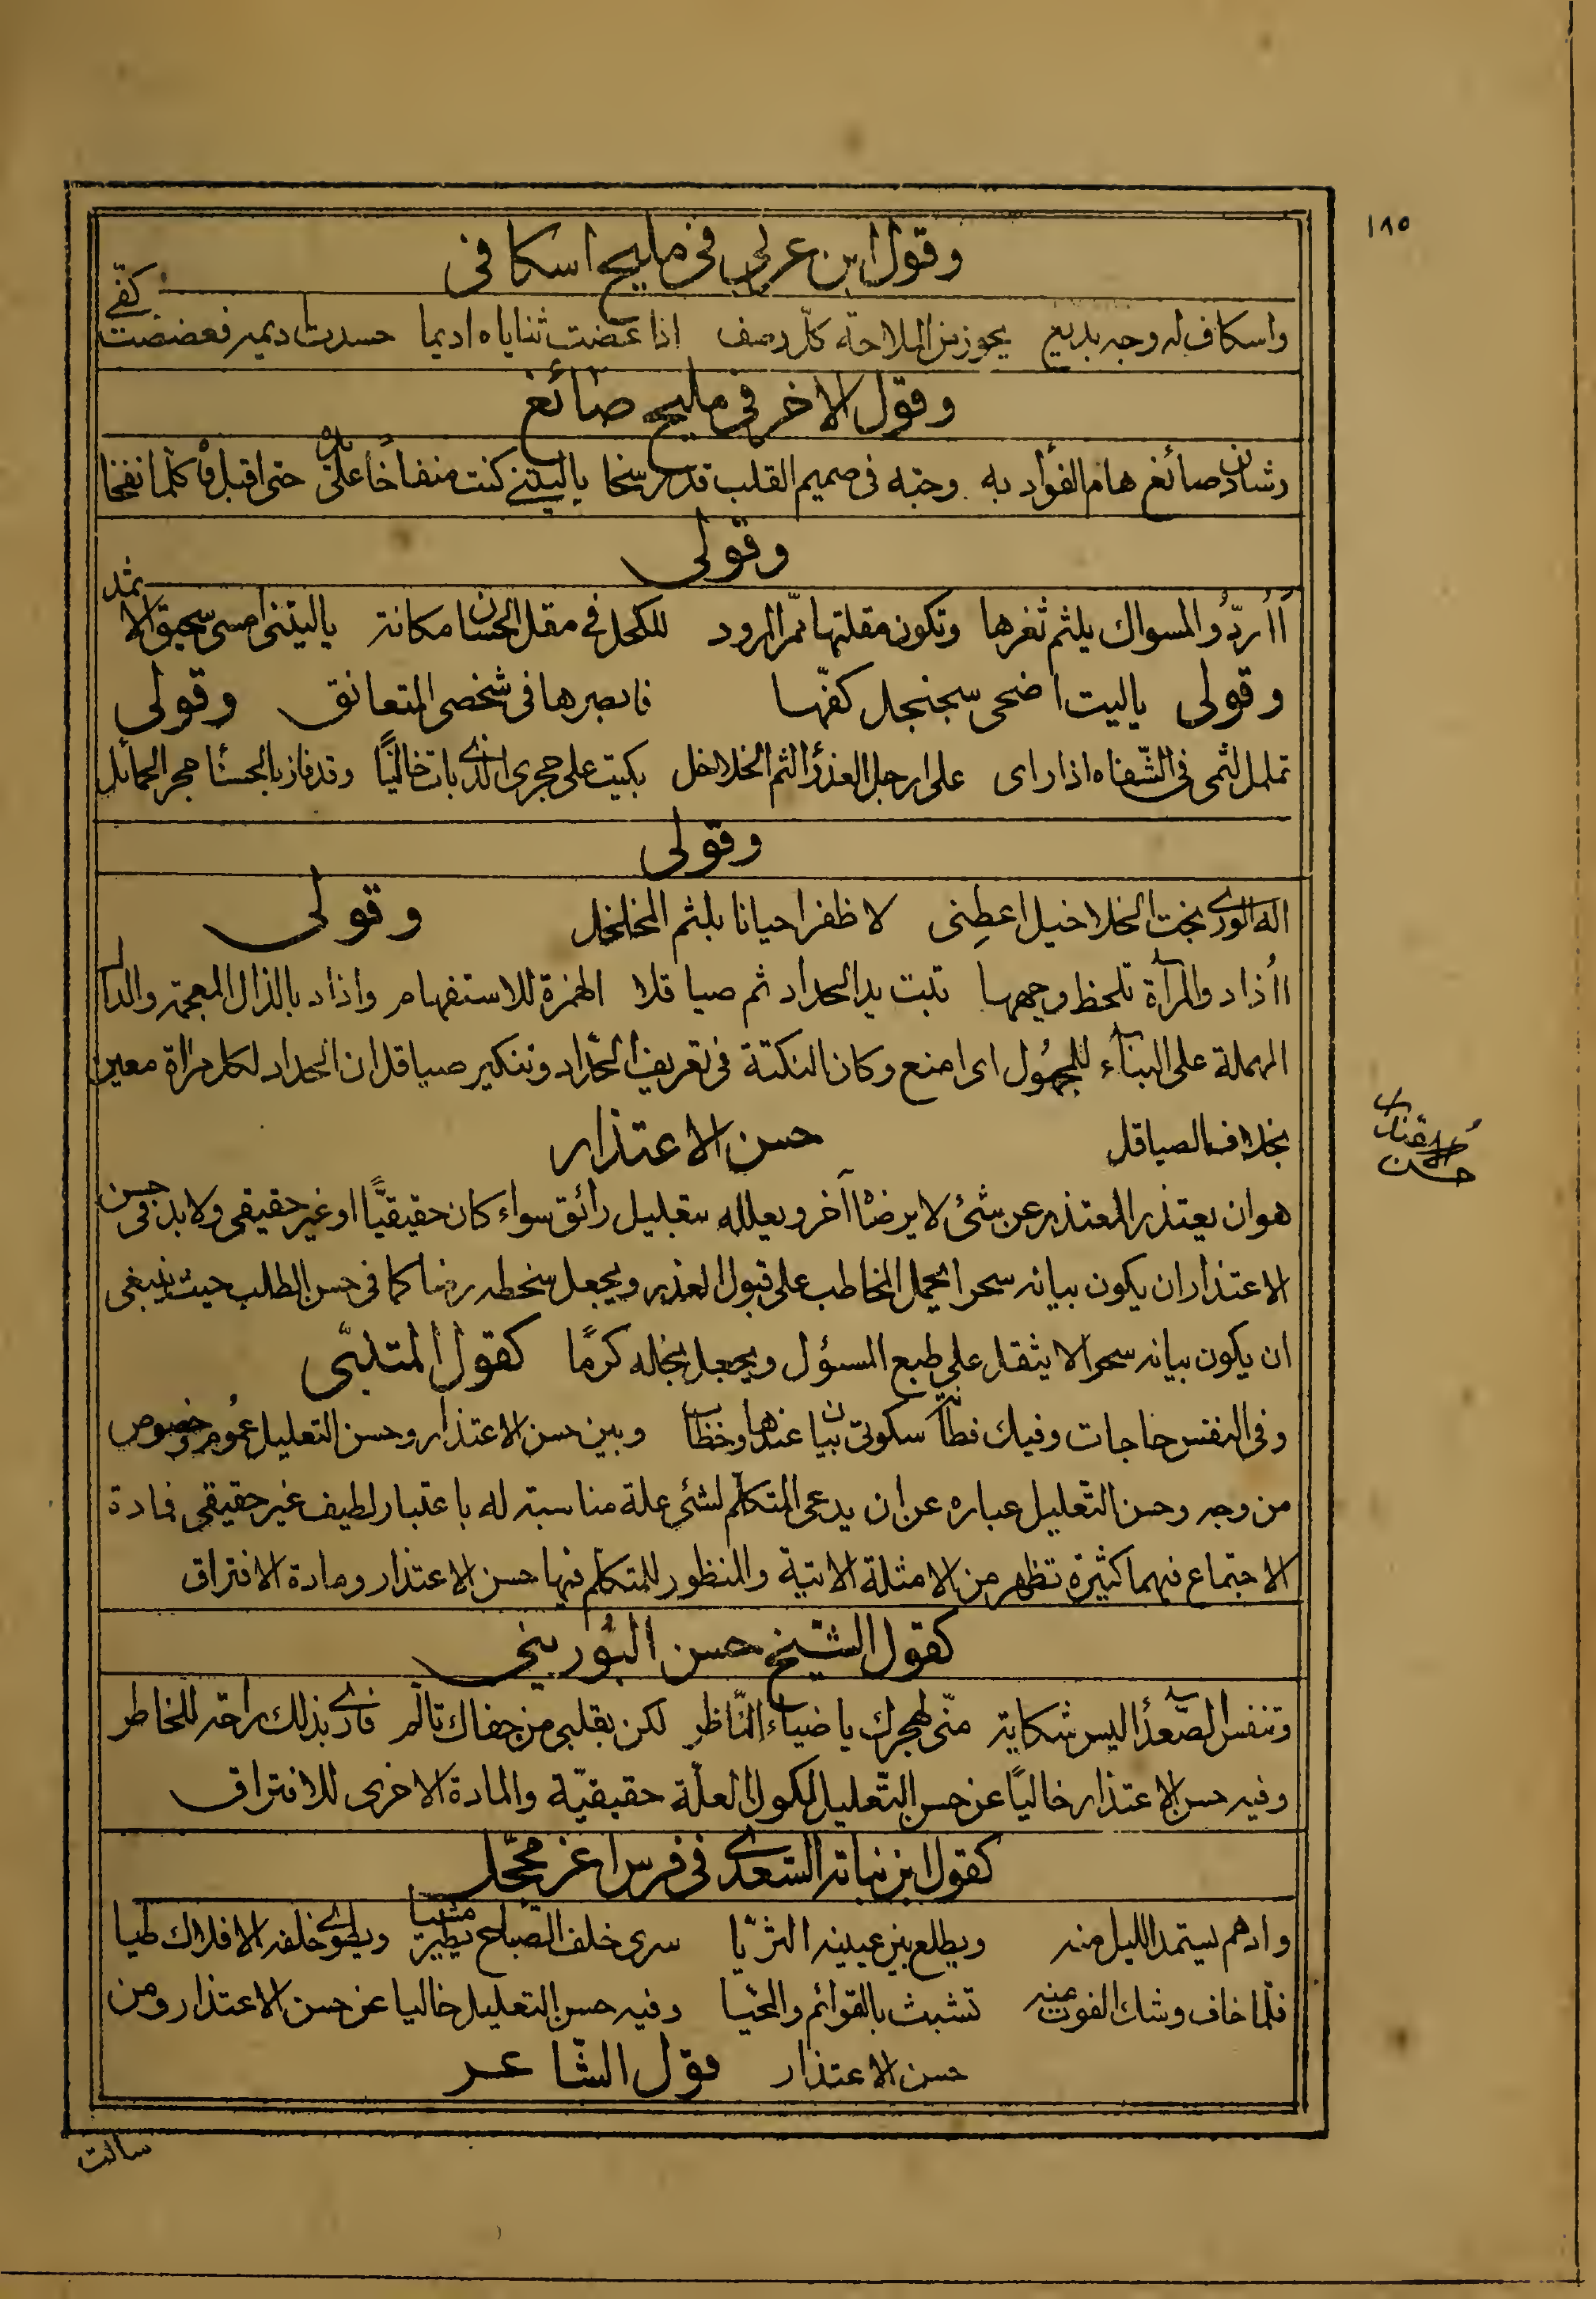 ١٨٥
وقول ابن عربي في مليح اسكافى
واسكاف له وجه بديع يحوز من الملاحة كلّ وصف اذا عضت ثناياه اديما حسدت اديمه فعضضت كفّي
وقول الاخر في مليح صائغ
وشادن صائغ هام الفؤاد به وحبّه فى صميم القلب قد رسخا ياليتنے كنت منفاخًا على يده حتى اقبل فاه كلّما نفخا
وقولى
أاُردّ والمسواك يلثم ثغرها وتكون مقلتها ممّر المرود للكحل في مقل الحسان مكانة ياليتنى امسى سحيق الاثمد
وقولى ياليت اضحى سجنجل كفّها فابصرها فى شخصى المتعانق وقولى
تململ لثمى فى الشّفاه اذا راى على ارجل العذراء لثم الخلاخل بكيت على حجرى الذى بات خاليًا وقد فاز بالحسنا حجر الحمائل
وقولى
اله الورى بخت الخلاخيل اعطِنى لاظفر احيانا بلثم المخلخل وقولى
ااُذاد والمرآة تلحظ وجهها تبت يد الحداد ثم صياقلا الهمزة للاستفهام واذاد بالذال المعجمة والدال
المهملة على البناء للمجهُول اى امنع وكان النكتة فى تعريف الحدّاد وتنكير صياقل ان الحداد لكل مراة معين
بخلاف الصياقل حسن الاعتذار
حسن الاعتذار
هو ان يعتذر المعتذر عن شئ لا يرضاه آخر ويعلله بتعليل رائق سواء كان حقيقيًّا او غير حقيقى ولا بد فى حسن
الاعتذار ان يكون بيانه سحرا يحمل المخاطب على قبول العذر ويجعل سخطه رضا كما فى حسن الطلب حيث ينبغى
ان يكون بيانه سحرا لا يثقل على طبع المسؤل ويجعل بخله كرمًا كقول المتنبّى
وفى النفس حاجات وفيك فطانة سكوتى بيان عندها وخطاب وبين حسن الاعتذار وحسن التعليل عُموم وخصوص
من وجه وحسن التّعليل عباره عن ان يدعى المتكلّم لشئ علة مناسبة له باعتبار لطيف غير حقيقى فمادة
الاجتماع فيهما كثيرة تظهر من الامثلة الاتية والمنظور للمتكلّم فيها حسن الاعتذار ومادة الافتراق
كقول الشّيخ حسن البُورينى
وتنفس الصّعداء ليس شكاية منّى لهجرك يا ضياء النّاظر لكن بقلبى من جفاك تالّم فارى بذلك راحة للخاطر
وفيه حسن الاعتذار خاليًا عن حسن التّعليل لكون العلّة حقيقيّة والمادة الاخرى للافتراق
كقول ابن نباته السّعدى فى فرس اغرّ محجّل
وادهم يستمد الليل منه ويطلع بين عينيه الثريّا سرى خلف الصّباح يطير مشيا ويطوى خلفه الافلاك طيا
فلمّا خاف وشك الفوت منه تشبث بالقوائم والمحيّا وفيه حسن التعليل خاليا عن حسن الاعتذار ومن
حسن الاعتذار قول الشّاعر
سالت